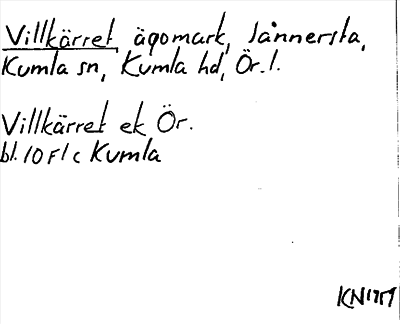 Villkärret, ägomark, Sånnersta,
Kumla sn, Kumla hd, Ör. l.
Villkärret ek Ör.
bl. 10 F 1 c Kumla